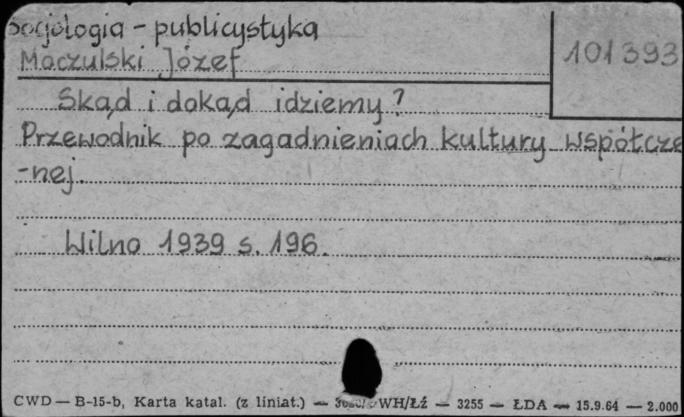 Socjologia - publicystyka
101393
Maczulski Józef
Skąd i dokąd idziemy?
Przewodnik po zagadnieniach kultury współcze
-nej.
Wilno 1939 s. 196.
CWD — B-15-b, Karta katal. (z liniat.) — WH/Łź — 3255 — ŁDA — 15.9.64 — 2.000